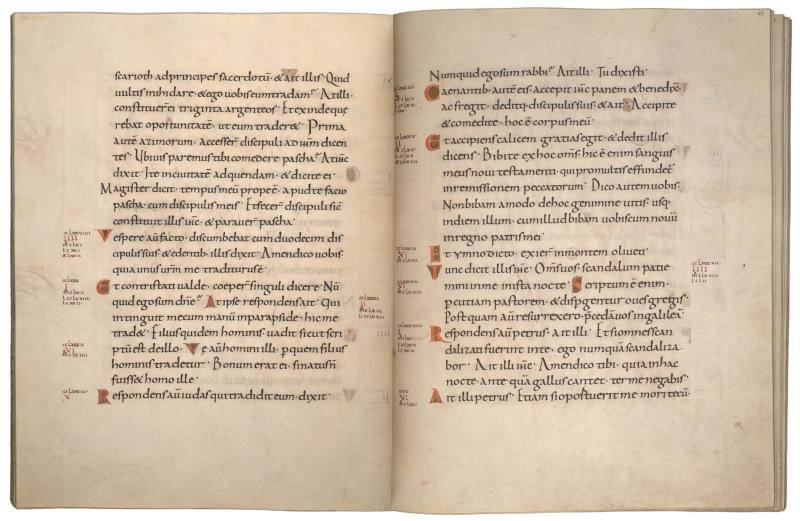 scarioth adprincipes sacerdotū· & ait illis· Quid
vultis mihi dare· & ego vobis eum tradam· At illi·
constituerēt ei triginta argenteos· Et exinde que
rebat oportunitatē· ut eum trader&· Prima
autē azimorum· accesserт̄ discipuli ad iħm dicen
tes· Ubi uis paremus tibi comedere pascha· At iħc
dixit· Ite in ciuitatē ad quendam· & dicite ei·
Magister dicit· tempus meū prope ē· apud te facio
pascha· cum discipulis meis· Et fecerт̄ discipuli sic
constituit illis iħc· & parauerт̄ pascha·
Vespere aūt facto· discumbebat cum duodecim dis
cipulis suis· & edentib· illis dixit· Amen dico vobis
quia unus urm̄ me traditurus ē·
Et contristati valde· coeperт̄ singuli dicere· Nū
quid ego sum dn̄e· At ipse respondens ait· Qui
intinguit mecum manū in parapside· hic me
trad&· Filius quidem hominis· uadit sicut scri
ptū est de illo· Ve aūt homini illi· p quem filius
hominis tradetur· Bonum erat ei· si natus nт̄
fuiss& homo ille·
Respondens aūt iudas qui tradidit eum· dixit·
Numquid ego sum rabbi· Ait illi· Tu dixisti·
Caenantib· autē eis· accepit iħc panem & benedix̄·
ac fregit· deditq· discipulis suis· & ait· Accipite
& comedite· hoc ē corpus meū·
Et accipiens calicem gratias egit· & dedit illis
dicens· Bibite ex hoc om̄s· hic ē enim sanguis
meus noui testamenti· qui pro multis effundet̄
in remissionem peccatorum· Dico autem uobis·
Non bibam amodo de hoc genimine uitis· usq·
in diem illum· cum illud bibam uobiscum nouū
in regno patris mei·
Et ymno dicto· exierт̄ in montem oliueti·
Tunc dicit illis iħc· Om̄s uos scandalum patie
mini in me in ista nocte· Scriptum ē enim·
pcutiam pastorem· & dispgentur oues gregis·
Postquam aūt resurrexero· pcedā uos in galileā·
Respondens aūt petrus· ait illi· Et si omnes scan
dalizati fuerint in te· ego numquā scandaliza
bor· Ait illi iħc· Amen dico tibi· quia in hac
nocte· antequā gallus cantet· ter me negabis·
Ait illi petrus· Etiam si oportuerit me mori tecū·